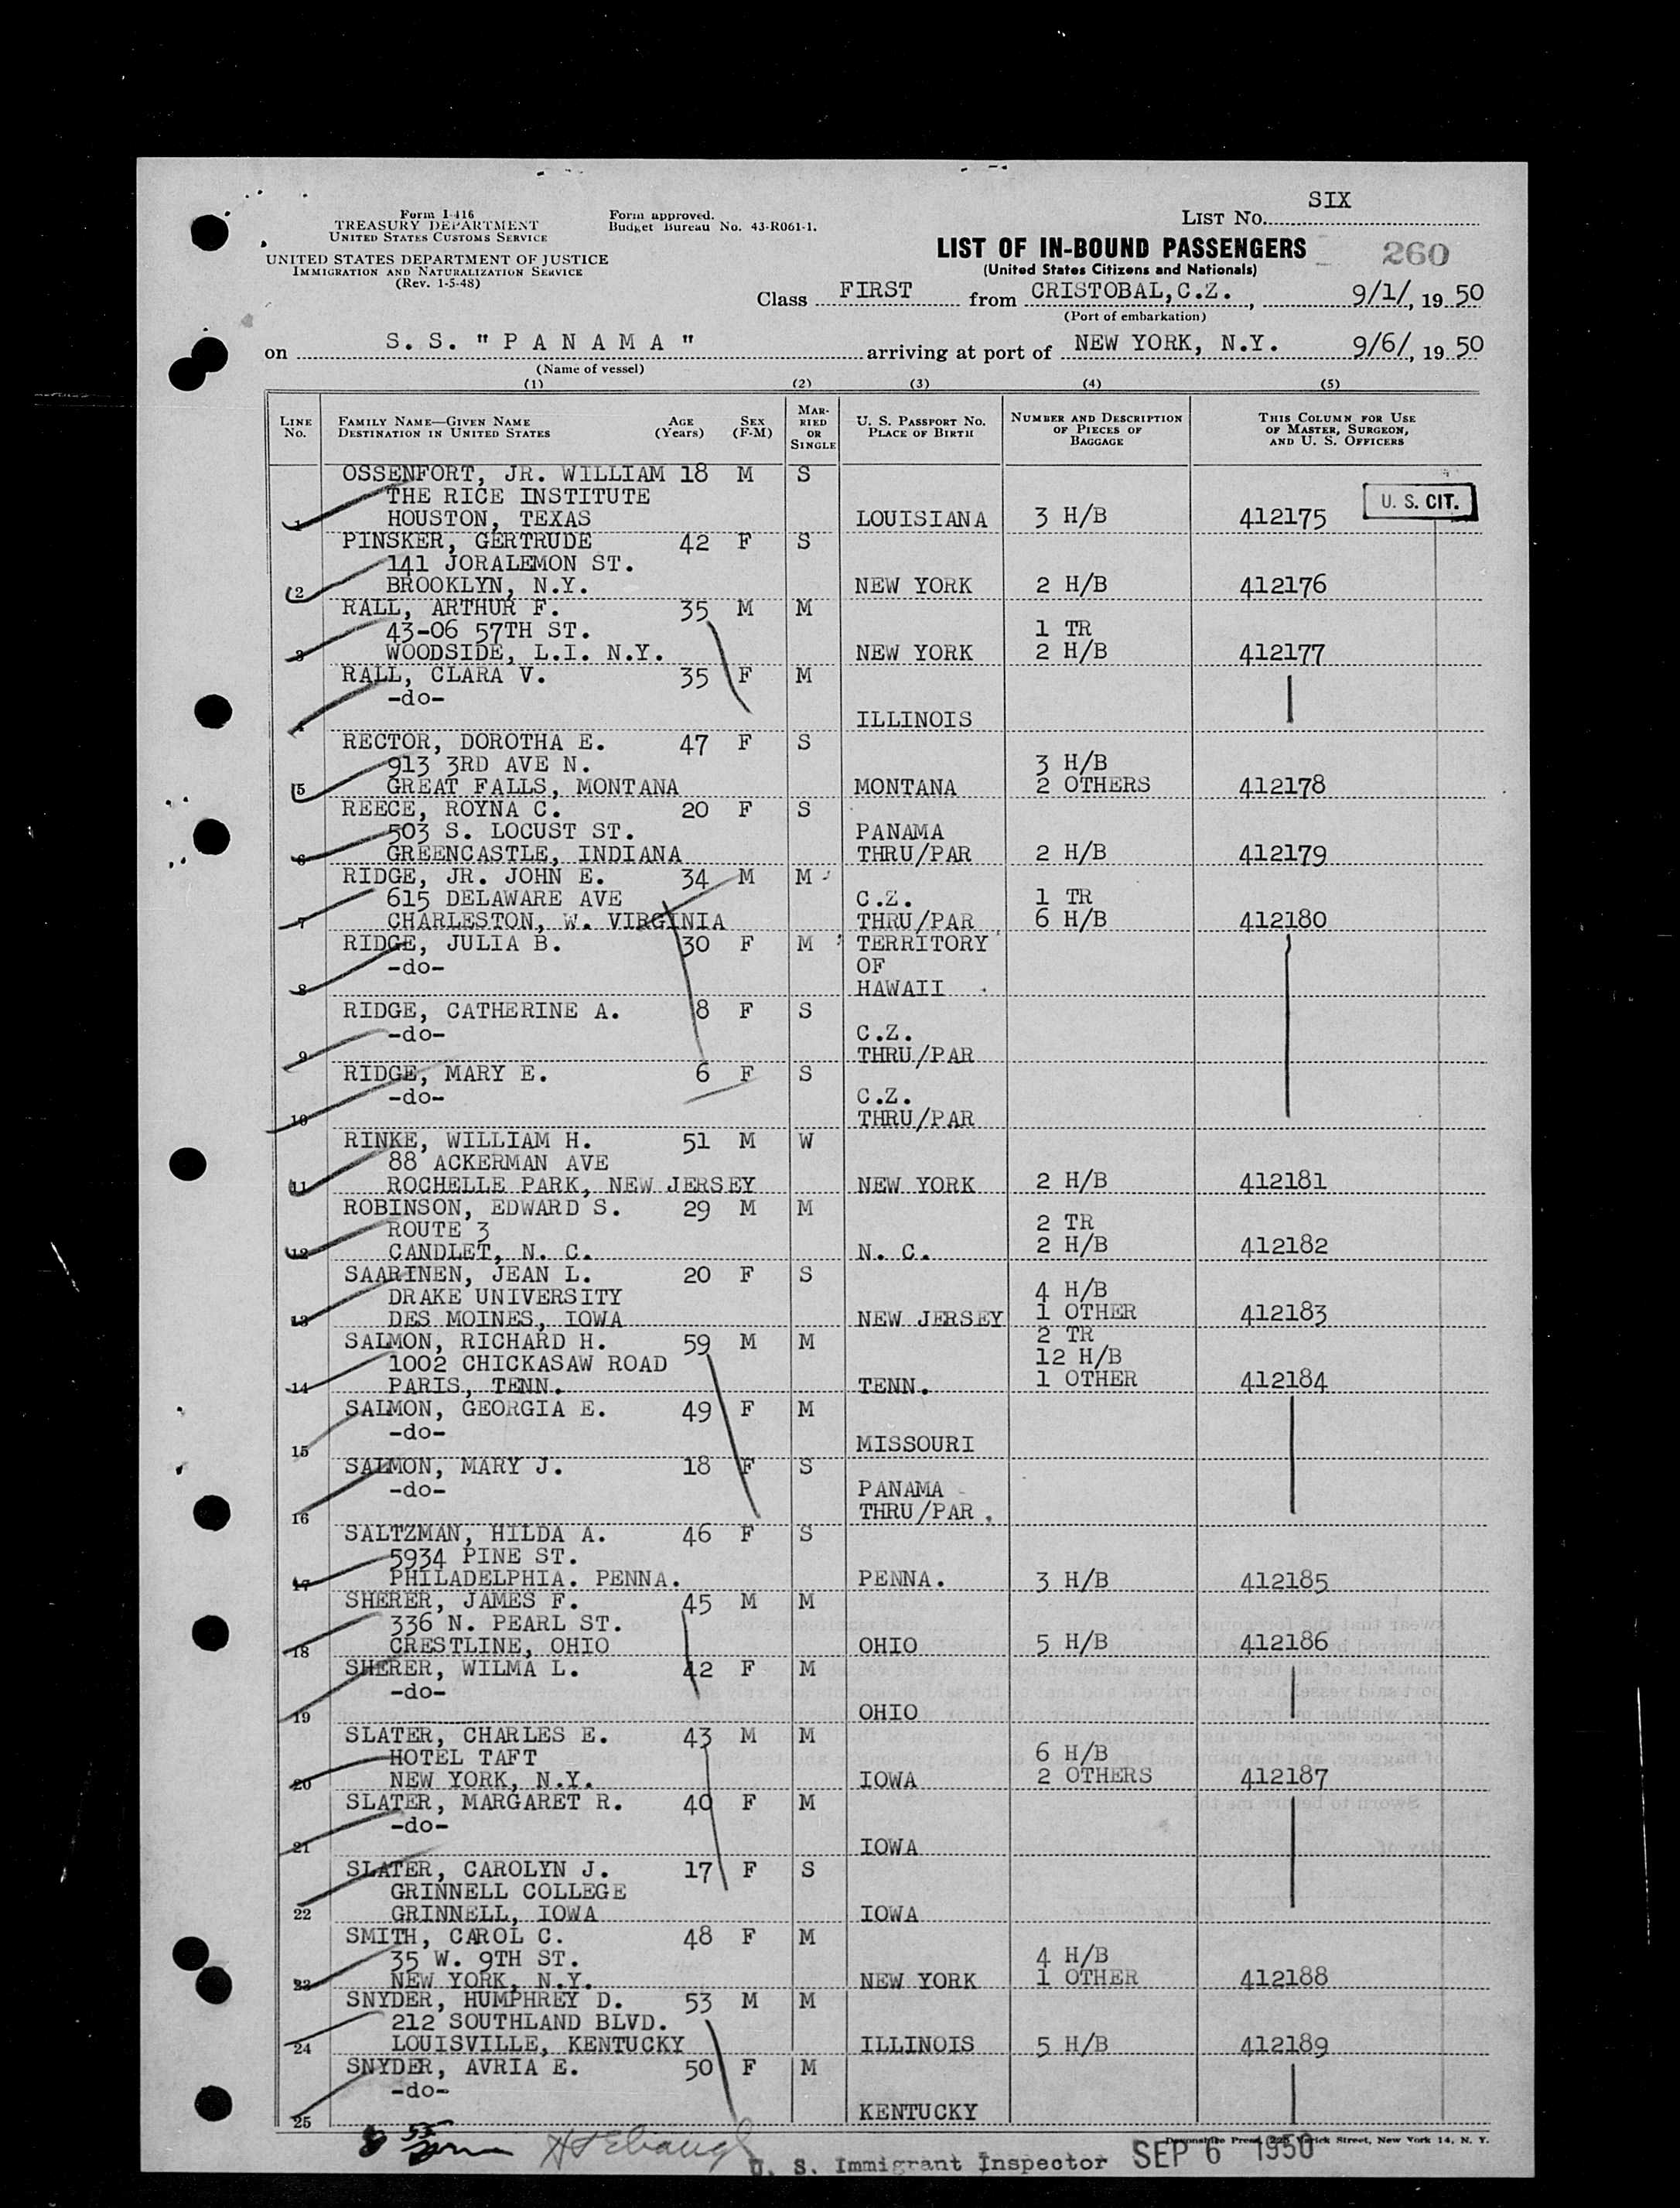 SIX
Form I-416
TREASURY DEPARTMENT
UNITED STATES CUSTOMS SERVICE
Form approved.
Budget Bureau No. 43-R061-1.
LIST No.
UNITED STATES DEPARTMENT OF JUSTICE
IMMIGRATION AND NATURALIZATION SERVICE
(Rev. 1-5-48)
LIST OF IN-BOUND PASSENGERS 260
(United States Citizens and Nationals)
Class FIRST from CRISTOBAL, C.Z., 9/1/, 19 50
(Port of embarkation)
on S. S. " P A N A M A " arriving at port of NEW YORK, N.Y. 9/6/, 19 50
(Name of vessel)
(1) (2) (3) (4) (5)
LINE No. FAMILY NAME—GIVEN NAME DESTINATION IN UNITED STATES AGE (Years) SEX (F-M) MARRIED OR SINGLE U. S. PASSPORT No. PLACE OF BIRTH NUMBER AND DESCRIPTION OF PIECES OF BAGGAGE THIS COLUMN FOR USE OF MASTER, SURGEON, AND U. S. OFFICERS
OSSENFORT, JR. WILLIAM 18 M S
THE RICE INSTITUTE U. S. CIT.
1 HOUSTON, TEXAS LOUISIANA 3 H/B 412175
PINSKER, GERTRUDE 42 F S
141 JORALEMON ST.
2 BROOKLYN, N.Y. NEW YORK 2 H/B 412176
RALL, ARTHUR F. 35 M M
43-06 57TH ST. 1 TR
3 WOODSIDE, L.I. N.Y. NEW YORK 2 H/B 412177
RALL, CLARA V. 35 F M
-do-
4 ILLINOIS
RECTOR, DOROTHA E. 47 F S
913 3RD AVE N. 3 H/B
5 GREAT FALLS, MONTANA MONTANA 2 OTHERS 412178
REECE, ROYNA C. 20 F S
503 S. LOCUST ST. PANAMA
6 GREENCASTLE, INDIANA THRU/PAR 2 H/B 412179
RIDGE, JR. JOHN E. 34 M M
615 DELAWARE AVE C.Z. 1 TR
7 CHARLESTON, W. VIRGINIA THRU/PAR 6 H/B 412180
RIDGE, JULIA B. 30 F M TERRITORY
-do- OF
8 HAWAII
RIDGE, CATHERINE A. 8 F S
-do- C.Z.
9 THRU/PAR
RIDGE, MARY E. 6 F S
-do- C.Z.
10 THRU/PAR
RINKE, WILLIAM H. 51 M W
88 ACKERMAN AVE
11 ROCHELLE PARK, NEW JERSEY NEW YORK 2 H/B 412181
ROBINSON, EDWARD S. 29 M M
ROUTE 3 2 TR
12 CANDLET, N. C. N. C. 2 H/B 412182
SAARINEN, JEAN L. 20 F S
DRAKE UNIVERSITY 4 H/B
13 DES MOINES, IOWA NEW JERSEY 1 OTHER 412183
SALMON, RICHARD H. 59 M M 2 TR
1002 CHICKASAW ROAD 12 H/B
14 PARIS, TENN. TENN. 1 OTHER 412184
SALMON, GEORGIA E. 49 F M
-do-
15 MISSOURI
SALMON, MARY J. 18 F S
-do- PANAMA
16 THRU/PAR
SALTZMAN, HILDA A. 46 F S
5934 PINE ST.
17 PHILADELPHIA. PENNA. PENNA. 3 H/B 412185
SHERER, JAMES F. 45 M M
336 N. PEARL ST.
18 CRESTLINE, OHIO OHIO 5 H/B 412186
SHERER, WILMA L. 42 F M
-do-
19 OHIO
SLATER, CHARLES E. 43 M M
HOTEL TAFT 6 H/B
20 NEW YORK, N.Y. IOWA 2 OTHERS 412187
SLATER, MARGARET R. 40 F M
-do-
21 IOWA
SLATER, CAROLYN J. 17 F S
GRINNELL COLLEGE
22 GRINNELL, IOWA IOWA
SMITH, CAROL C. 48 F M
35 W. 9TH ST. 4 H/B
23 NEW YORK, N.Y. NEW YORK 1 OTHER 412188
SNYDER, HUMPHREY D. 53 M M
212 SOUTHLAND BLVD.
24 LOUISVILLE, KENTUCKY ILLINOIS 5 H/B 412189
SNYDER, AVRIA E. 50 F M
-do-
25 KENTUCKY
Devonshire Press, 225 Varick Street, New York 14, N. Y.
U. S. Immigrant Inspector SEP 6 1950